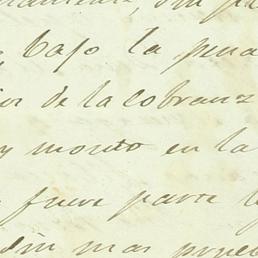 bajo la pena
de la cobranz
y monto en la
fuere parte
sin mas prueb